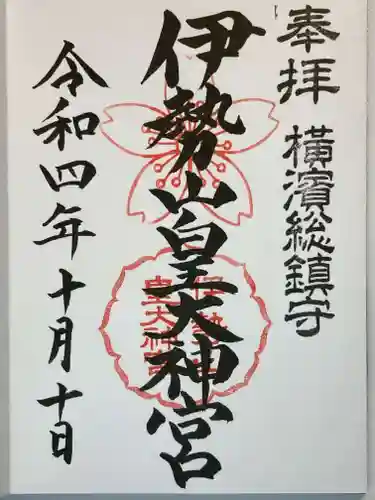 奉拝 横濱総鎮守
伊勢山皇大神宮
伊勢山
皇大神宮
令和四年十月十日